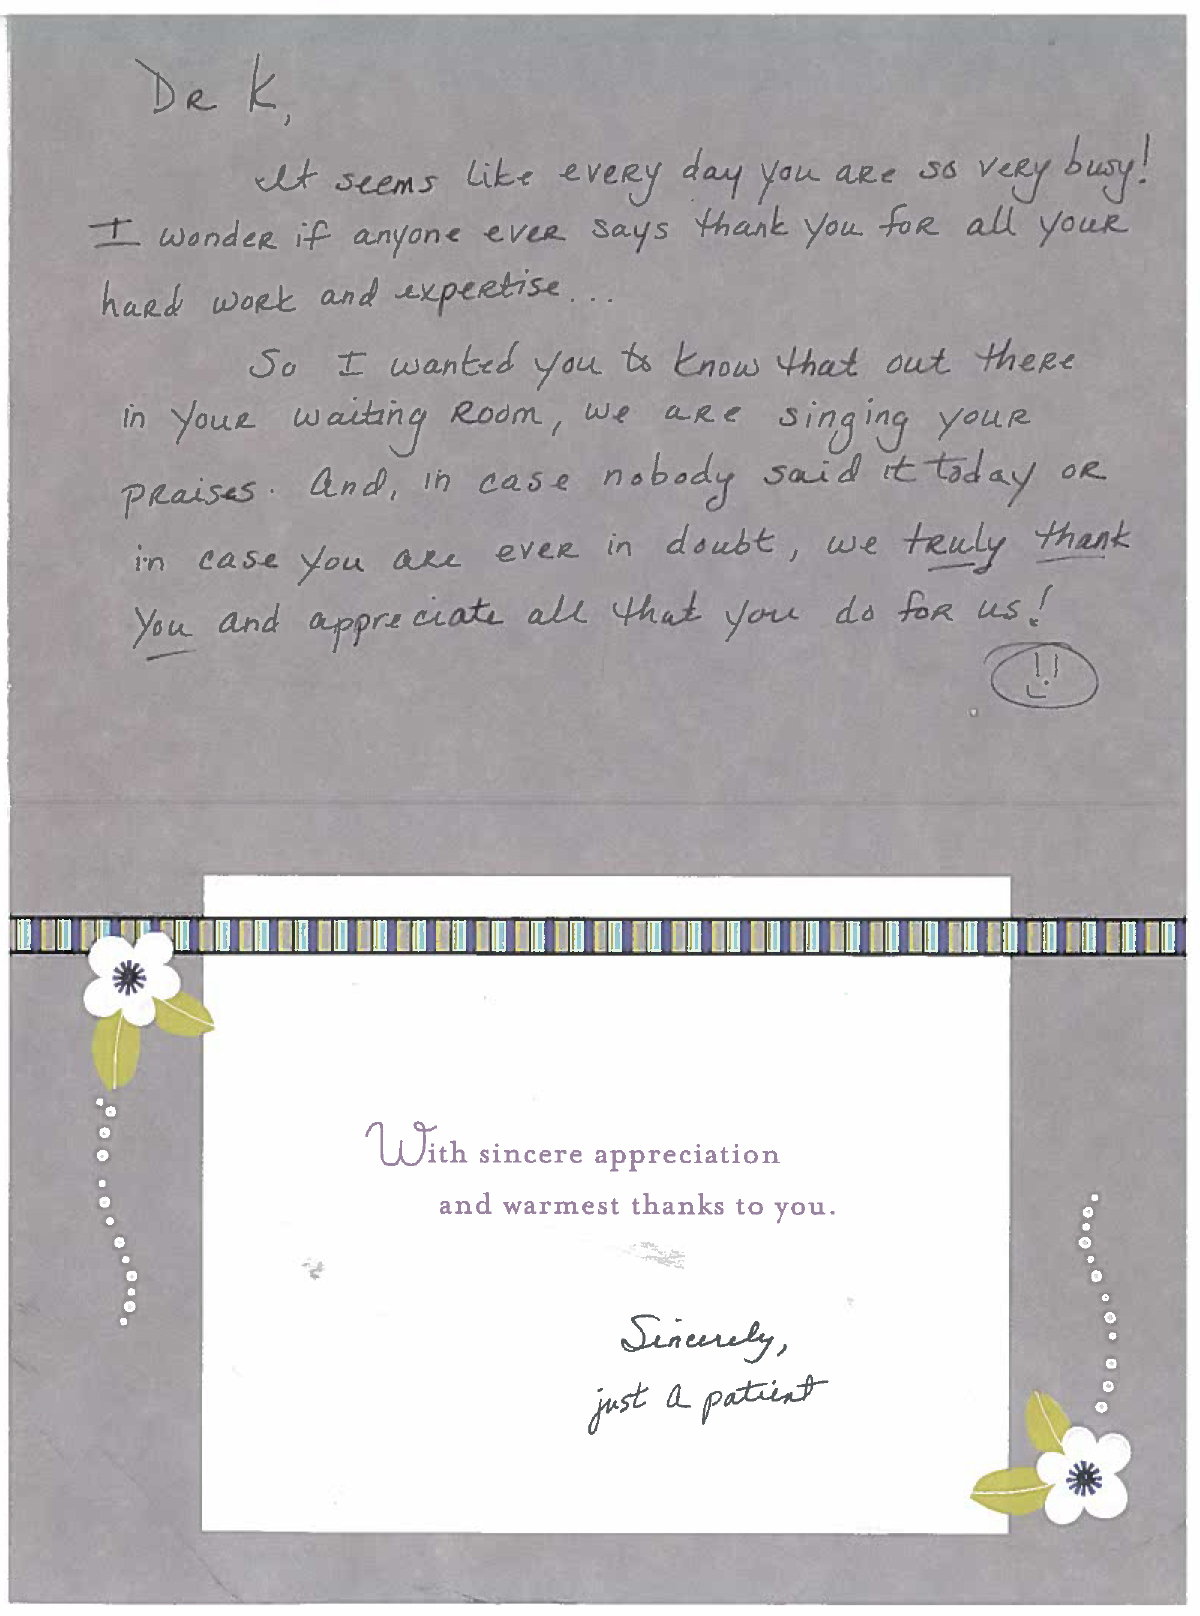 Dr K,
It seems like every day you are so very busy!
I wonder if anyone ever says thank you for all your
hard work and expertise...
So I wanted you to know that out there
in your waiting room, we are singing your
praises. And, in case nobody said it today or
in case you are ever in doubt, we truly thank
you and appreciate all that you do for us!
With sincere appreciation
and warmest thanks to you.
Sincerely,
just a patient